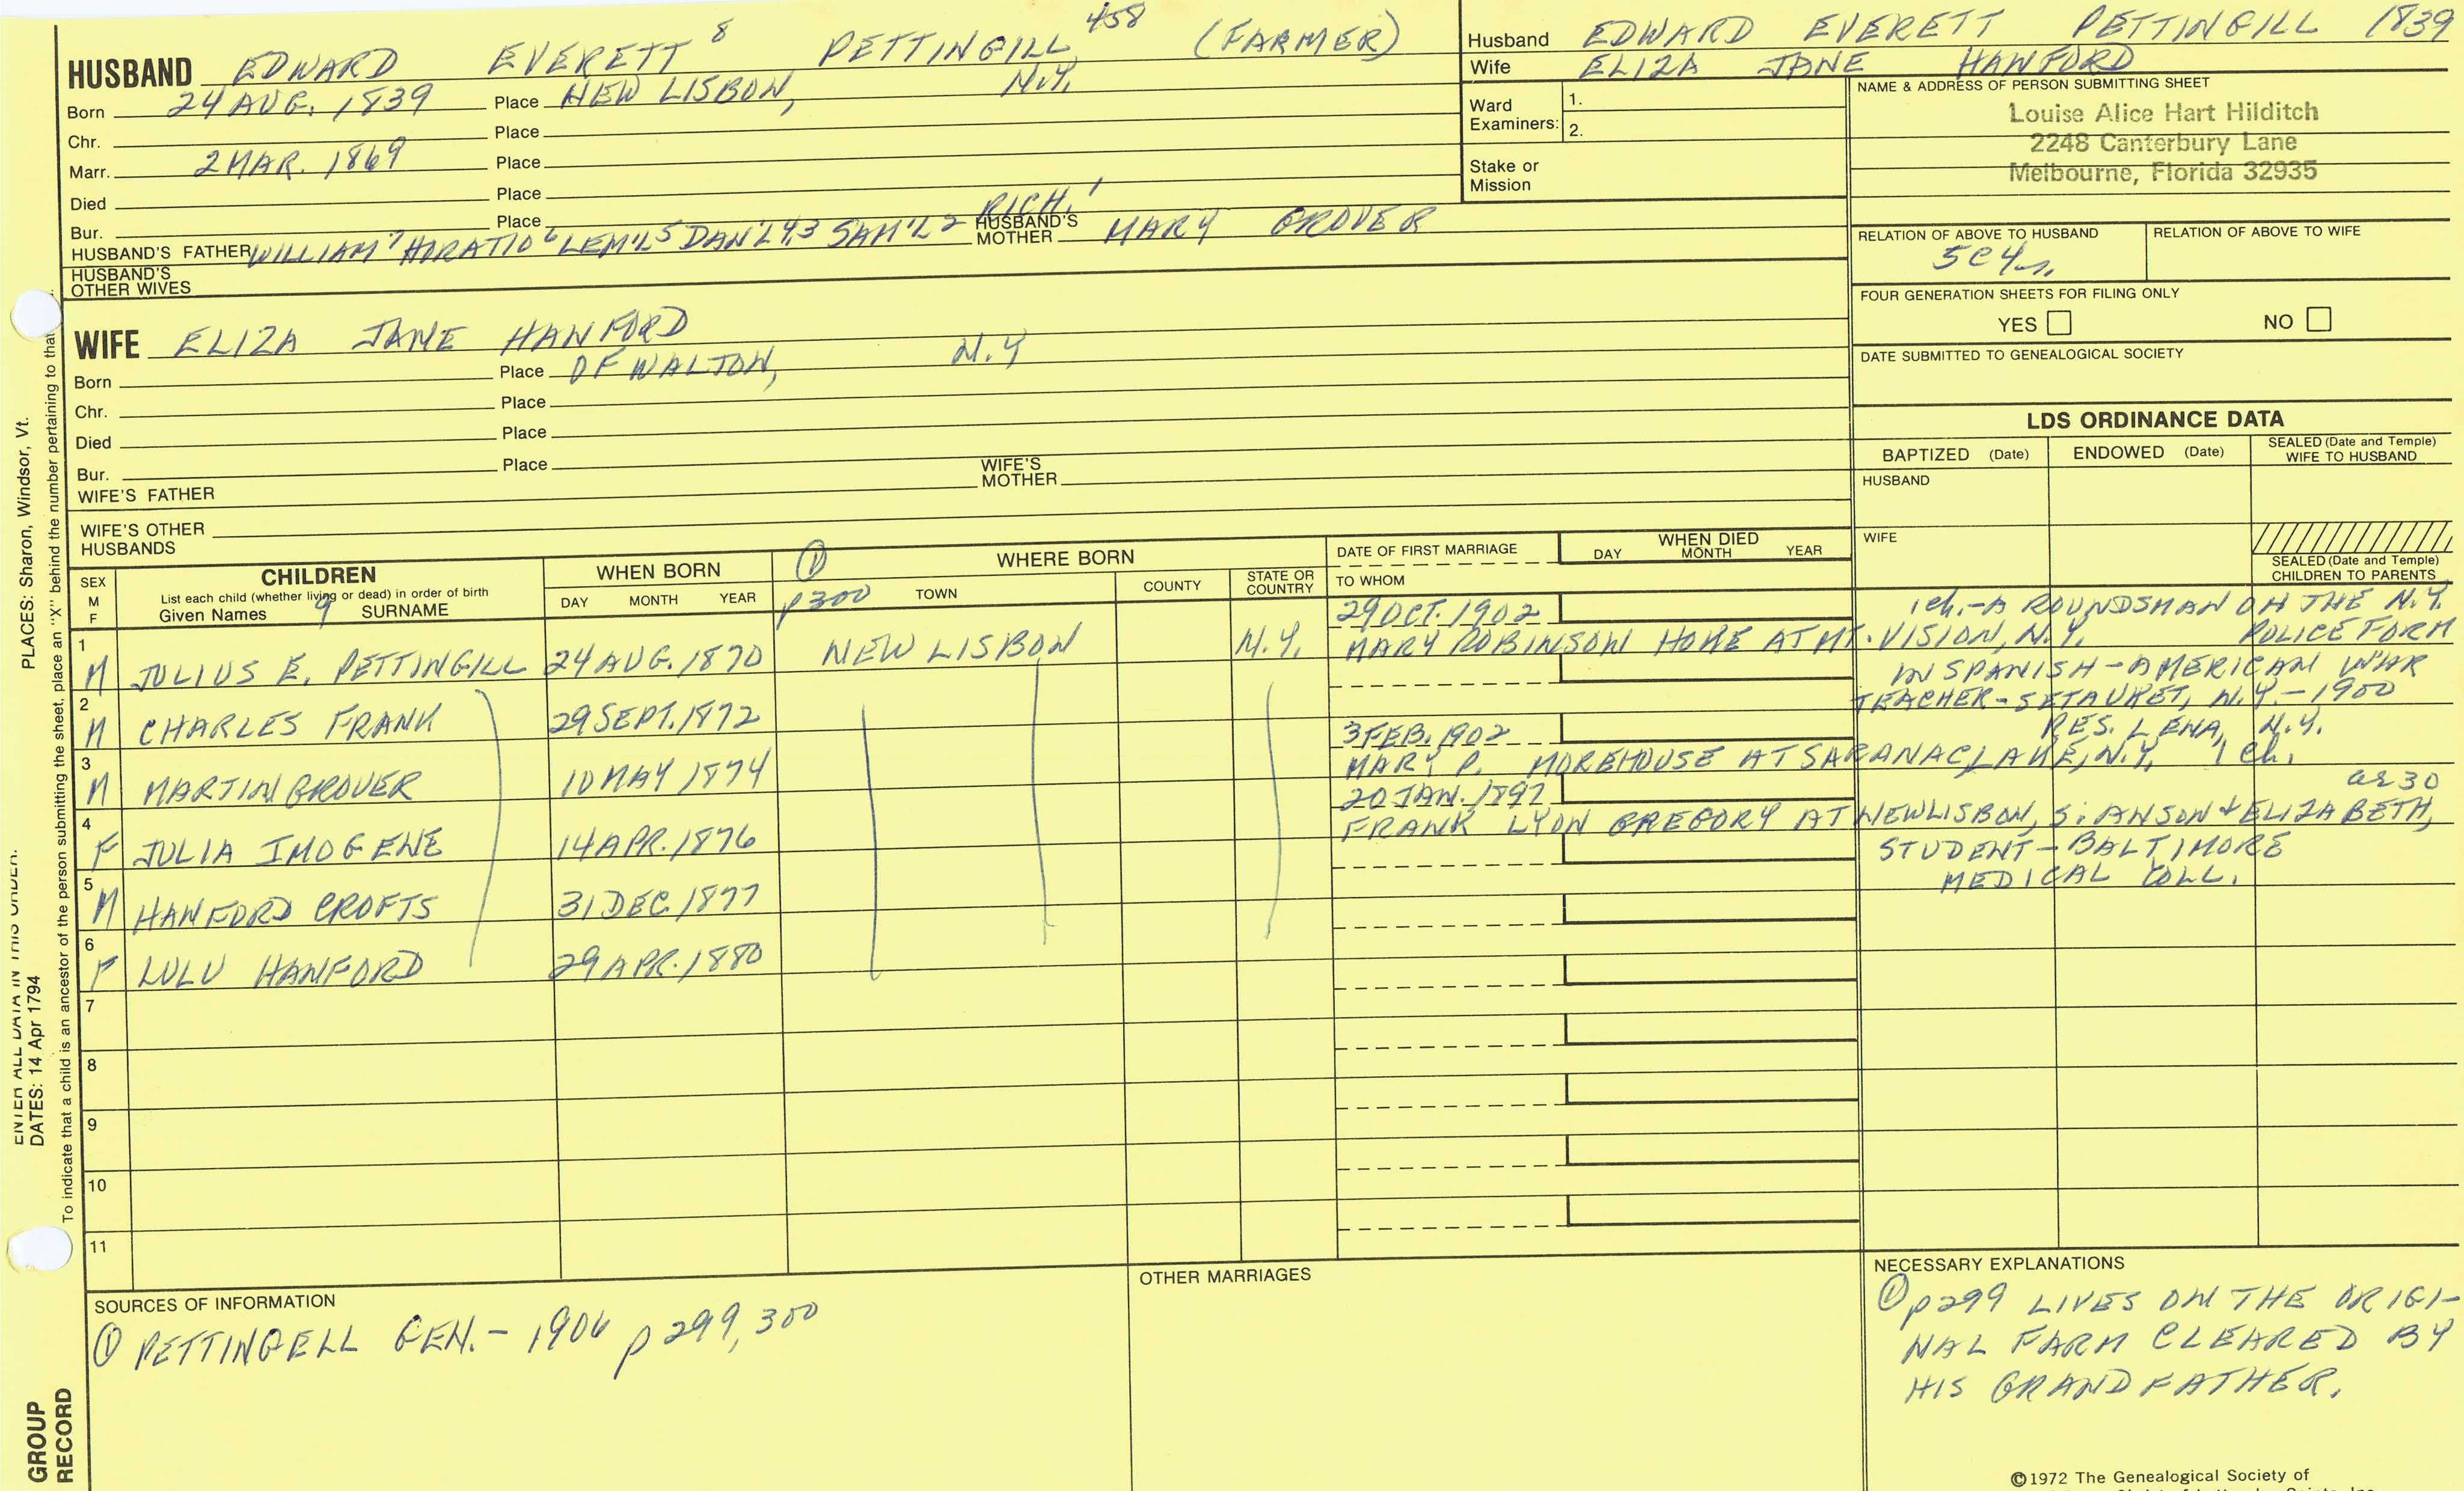 HUSBAND EDWARD EVERETT 8 PETTINGILL 458 (FARMER)
Born 24 AUG. 1839 Place NEW LISBON, N.Y.
Chr. Place
Marr. 2 MAR. 1869 Place
Died Place
Bur. Place
HUSBAND'S FATHER WILLIAM 7 HORATIO 6 LEM'L 5 DAN'L 4,3 SAM'L 2 RICH. 1 HUSBAND'S MOTHER MARY GROVER
HUSBAND'S OTHER WIVES
WIFE ELIZA JANE HANFORD
Born Place OF WALTON, N.Y
Chr. Place
Died Place
Bur. Place
WIFE'S FATHER WIFE'S MOTHER
WIFE'S OTHER HUSBANDS
Husband EDWARD EVERETT PETTINGILL 1839
Wife ELIZA JANE HANFORD
Ward Examiners: 1. 2.
Stake or Mission
NAME & ADDRESS OF PERSON SUBMITTING SHEET
Louise Alice Hart Hilditch
2248 Canterbury Lane
Melbourne, Florida 32935
RELATION OF ABOVE TO HUSBAND RELATION OF ABOVE TO WIFE
5C4r.
FOUR GENERATION SHEETS FOR FILING ONLY
YES NO
DATE SUBMITTED TO GENEALOGICAL SOCIETY
LDS ORDINANCE DATA
BAPTIZED (Date) ENDOWED (Date) SEALED (Date and Temple) WIFE TO HUSBAND
HUSBAND
WIFE
SEALED (Date and Temple) CHILDREN TO PARENTS
SEX M F
CHILDREN
List each child (whether living or dead) in order of birth
Given Names 9 SURNAME
WHEN BORN
DAY MONTH YEAR
① p300
WHERE BORN
TOWN COUNTY STATE OR COUNTRY
DATE OF FIRST MARRIAGE
TO WHOM
WHEN DIED
DAY MONTH YEAR
1 M JULIUS E. PETTINGILL 24 AUG. 1870 NEW LISBON N.Y. 29 OCT. 1902
MARY ROBINSON HOWE AT MT. VISION, N.Y.
1 ch. - A ROUNDSMAN ON THE N.Y. POLICE FORM
IN SPANISH-AMERICAN WAR
2 M CHARLES FRANK 29 SEPT. 1872
TEACHER - SETAUKET, N.Y. - 1900
RES. LENA, N.Y.
3 M MARTIN GROVER 10 MAY 1874 3 FEB. 1902
MARY P. MOREHOUSE AT SARANAC LAKE, N.Y. 1 ch.
4 F JULIA IMOGENE 14 APR. 1876 20 JAN. 1897 as 30
FRANK LYON GREGORY AT NEW LISBON, S: ANSON + ELIZABETH,
5 M HANFORD CROFTS 31 DEC. 1877
STUDENT - BALTIMORE
MEDICAL COLL.
6 F LULU HANFORD 29 APR. 1880
7
8
9
10
11
SOURCES OF INFORMATION
① PETTINGELL GEN. - 1906 p 299, 300
OTHER MARRIAGES
NECESSARY EXPLANATIONS
① p299 LIVES ON THE ORIGI-
NAL FARM CLEARED BY
HIS GRANDFATHER.
©1972 The Genealogical Society of
PLACES: Sharon, Windsor, Vt.
ENTER ALL DATA IN THIS ORDER:
DATES: 14 Apr 1794
To indicate that a child is an ancestor of the person submitting the sheet, place an "X" behind the number pertaining to that
GROUP
RECORD